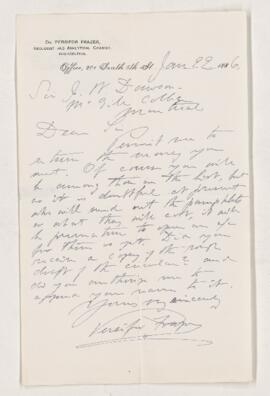 Dr. PERSIFOR FRAZER,
GEOLOGIST AND ANALYTICAL CHEMIST,
PHILADELPHIA.
Office, 201 South 5th St. Jan 22 1886.
Sir J. W Dawson
McGill College
Montreal
Dear Sir
Permit me to
return the money you
sent. Of course you will
be among those on the list, but
as it is doubtful at present
who will send out the pamphlets
or what they will cost, it will
be premature to open an a/c
for them as yet. Did you
receive a copy of the rough
draft of the circular? and
do you authorize me to
append your name to it.
Yours very sincerely
Persifor Frazer